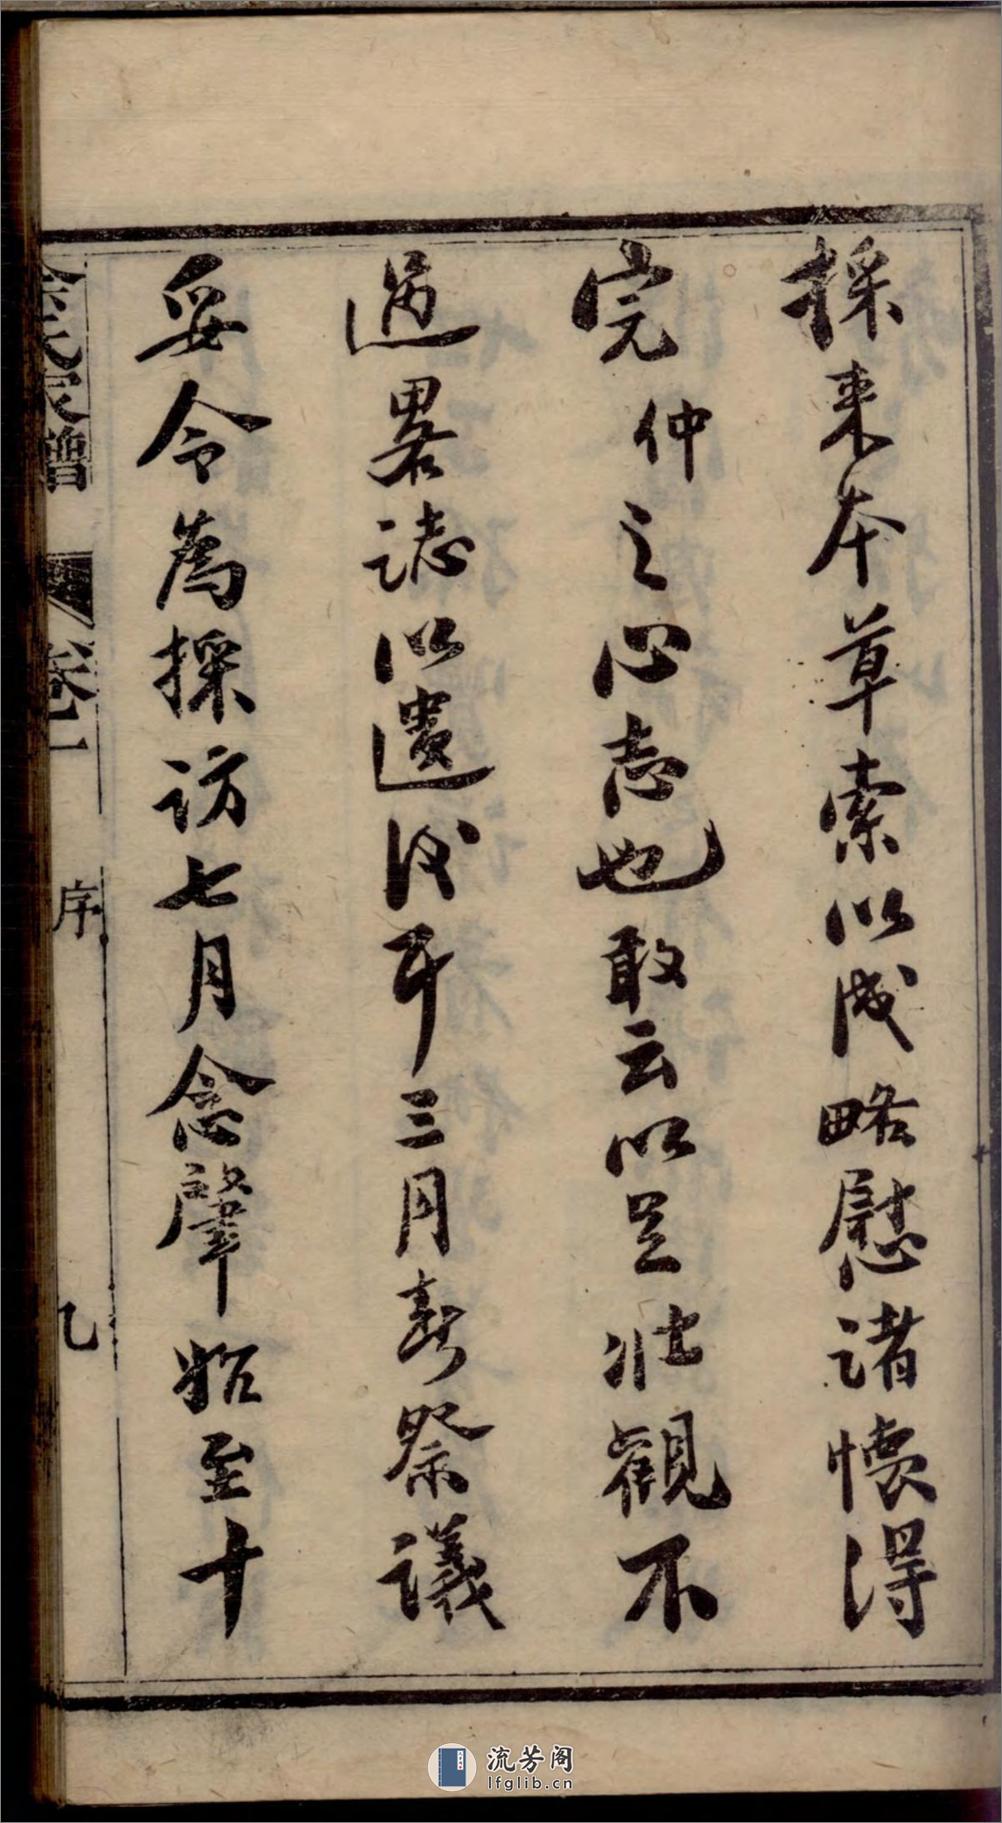 採来本草索以成略慰諸懐得
完仲之心志也敢云以足壯觀不
過畧誌以遺後耳三月春祭議
妥令為採访七月念肇始至十
氏家譜 卷一 序 九
流芳阁
lfglib.cn